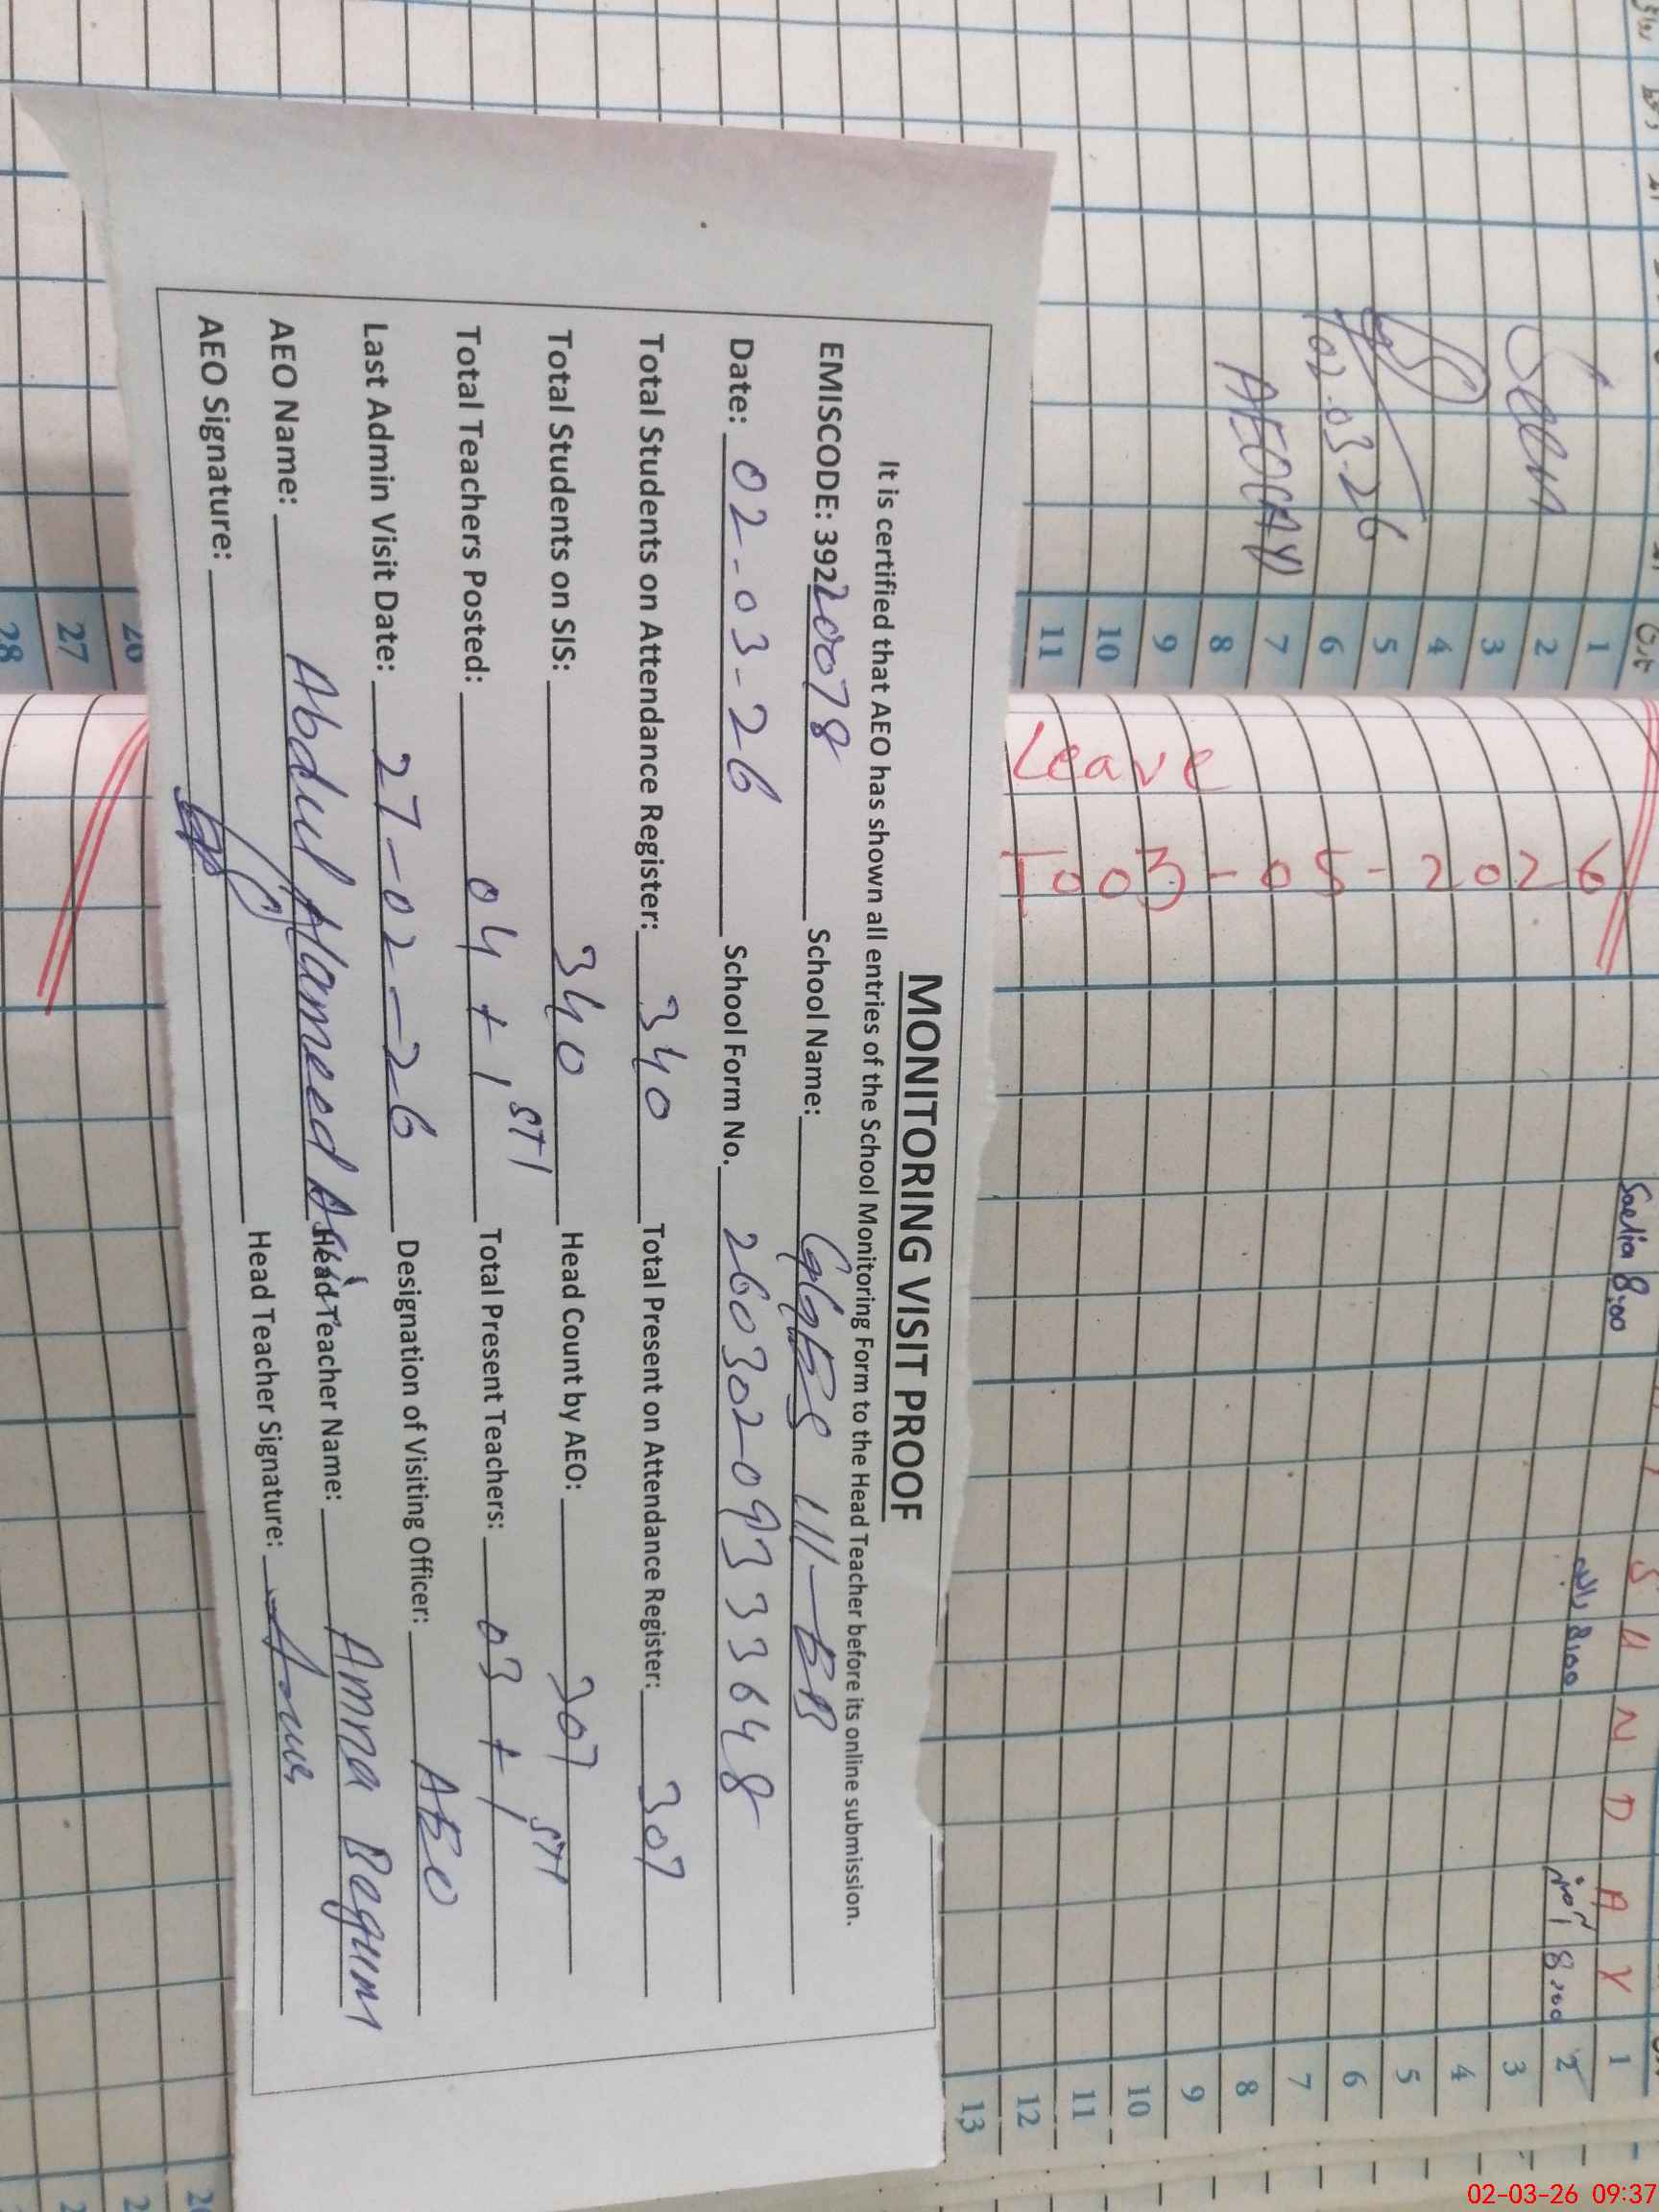 MONITORING VISIT PROOF
It is certified that AEO has shown all entries of the School Monitoring Form to the Head Teacher before its online submission.
EMISCODE: 39220078 School Name: GGES 111-EB
Date: 02-03-26 School Form No. 260302-09333648
Total Students on Attendance Register: 340 Total Present on Attendance Register: 307
Total Students on SIS: 340 Head Count by AEO: 307
Total Teachers Posted: 04 + 1 STI Total Present Teachers: 03 + 1 STI
Last Admin Visit Date: 27-02-26 Designation of Visiting Officer: AEO
AEO Name: Abdul Hameed Head Teacher Name: Amna Begum
AEO Signature: Head Teacher Signature:
02.03.26
1
2
3
4
5
6
7
8
9
10
11
Leave
To 03-05-2026
8:00
S U N D A Y
8:00
8:00
1
2
3
4
5
6
7
8
9
10
11
12
13
26
27
28
02-03-26 09:37